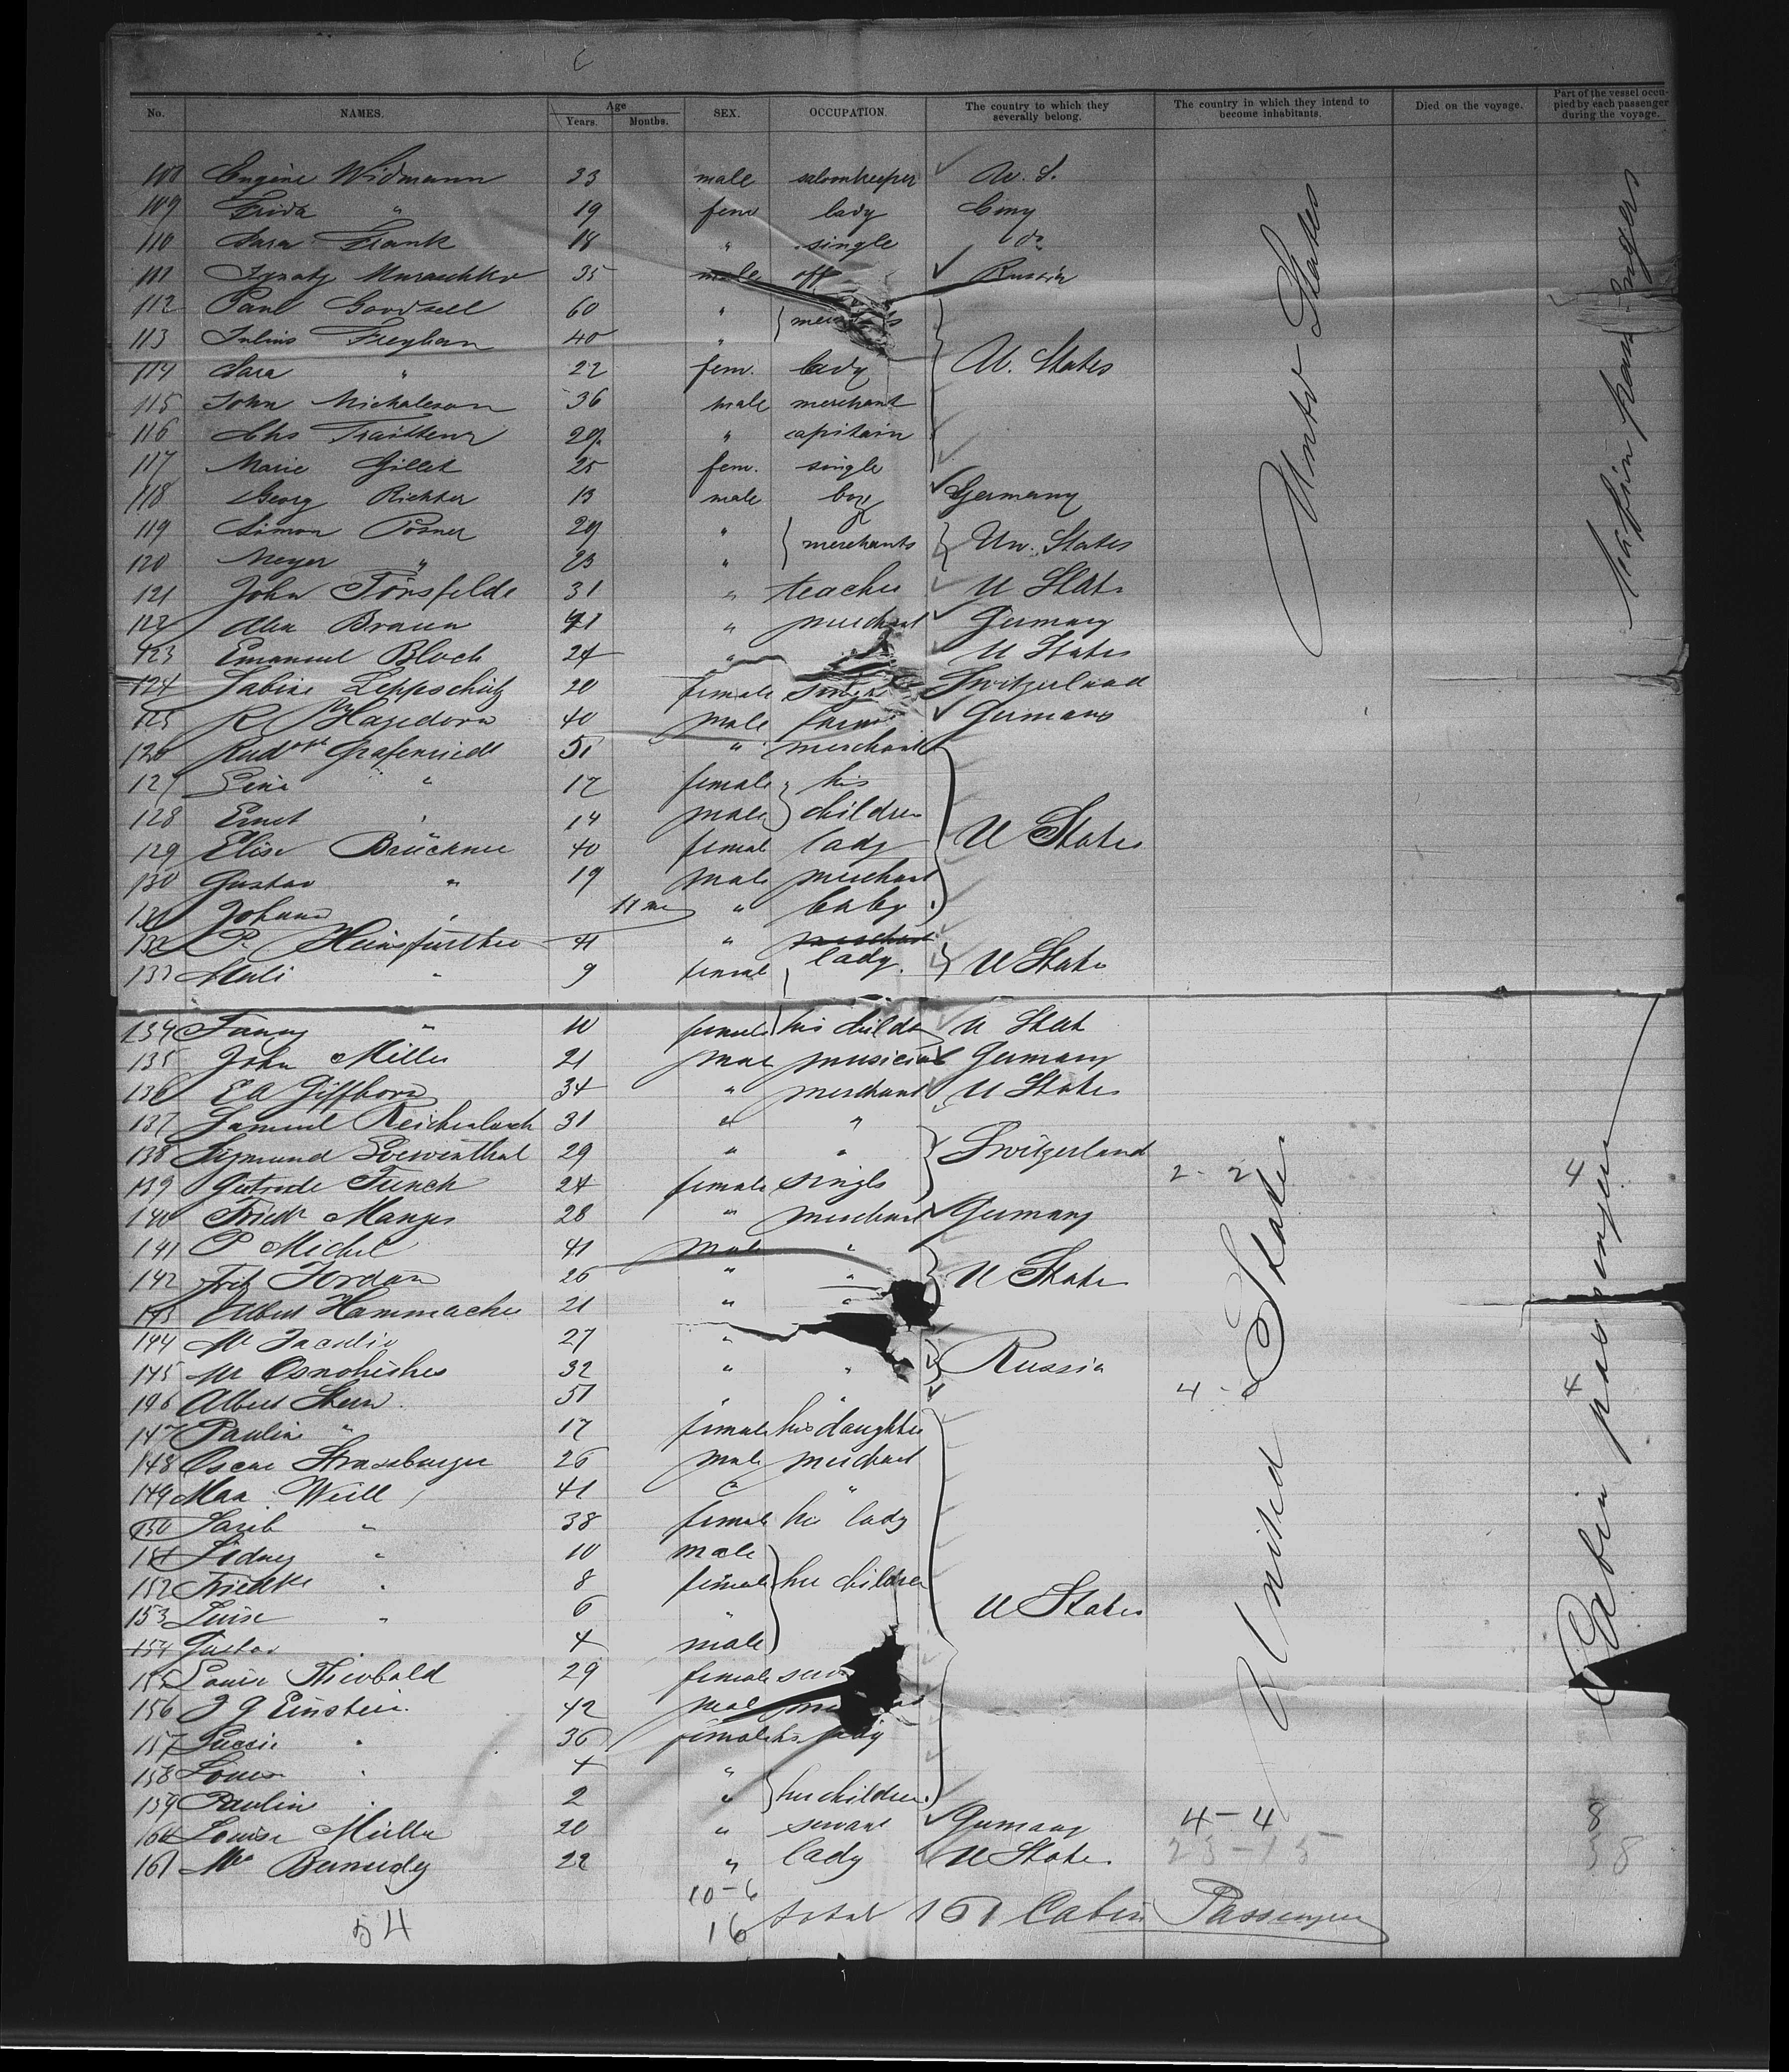 No. NAMES. Age Years. Months. SEX. OCCUPATION. The country to which they severally belong. The country in which they intend to become inhabitants. Died on the voyage. Part of the vessel occupied by each passenger during the voyage.
108 Eugene Widmann 33 male saloonkeeper U. S.
109 Frida " 19 fem lady Gmy
110 Sara Frank 18 " single do
111 Ignatz 35 male off Russia
112 Paul Goodsell 60 "
113 Julius Freyhan 40 "
114 Sara " 22 fem. lady U. States
115 John Michaleson 36 male merchant
116 Chs 29 " capitain
117 Marie Gillet 25 fem. single
118 Georg Richter 13 male boy Germany
119 Simon Posner 29 " merchants Un. States
120 Meyer " 23 "
121 John 31 " teacher U States
122 Alex Braun 41 " merchant Germany
123 Emanuel Bloch 24 " U States
124 Sabine Leppschütz 20 female single Switzerland
125 R Hagedorn 40 male Germany
126 Rudolph Grafenriedt 51 " merchant
127 Leni " 17 female his
128 Ernst " 14 male children
129 Elise Brückner 40 female lady U States
130 Gustav " 19 male merchant
131 Johann " 11 m " baby
132 P. Heinsfurther 41 " merchant
133 " 9 female lady U States
134 Fanny " 10 female his children U States
135 John Miller 21 male musician Germany
136 E A Giffhorn 34 " merchant U States
137 Samuel Reichenbach 31 " "
138 Sigmund Loewenthal 29 " " Switzerland
139 Gertrude Funch 24 female single 2 - 2 4
140 Friedr Manges 28 " merchant Germany
141 P Michel 41 male "
142 Fritz Jordan 26 " " U States
143 Albert Hammacher 21 " "
144 Mr 27 "
145 Mr 32 " " Russia
146 Albert Stern 51 " " 4 - 0 4
147 Paulin " 17 female his daughter
148 Oscar Strassburger 26 male merchant
149 Max Weill 41 " "
150 Sarah " 38 female his lady
151 Sidney " 10 male
152 " 8 female her children
153 Luise " 6 " U States
154 Gustav 4 male
155 Louise Theobald 29 female
156 J G Einstein 42 male
157 " 36 female his lady
158 Louis " 4 "
159 Paulin 2 " her children
160 Louise Müller 20 " servant Germany 4 - 4 8
161 Mrs 22 " lady U States 23 - 15 38
10 - 6
54 16 total 161 Cabin Passengers
United States
Cabin passengers
United States
Cabin passengers